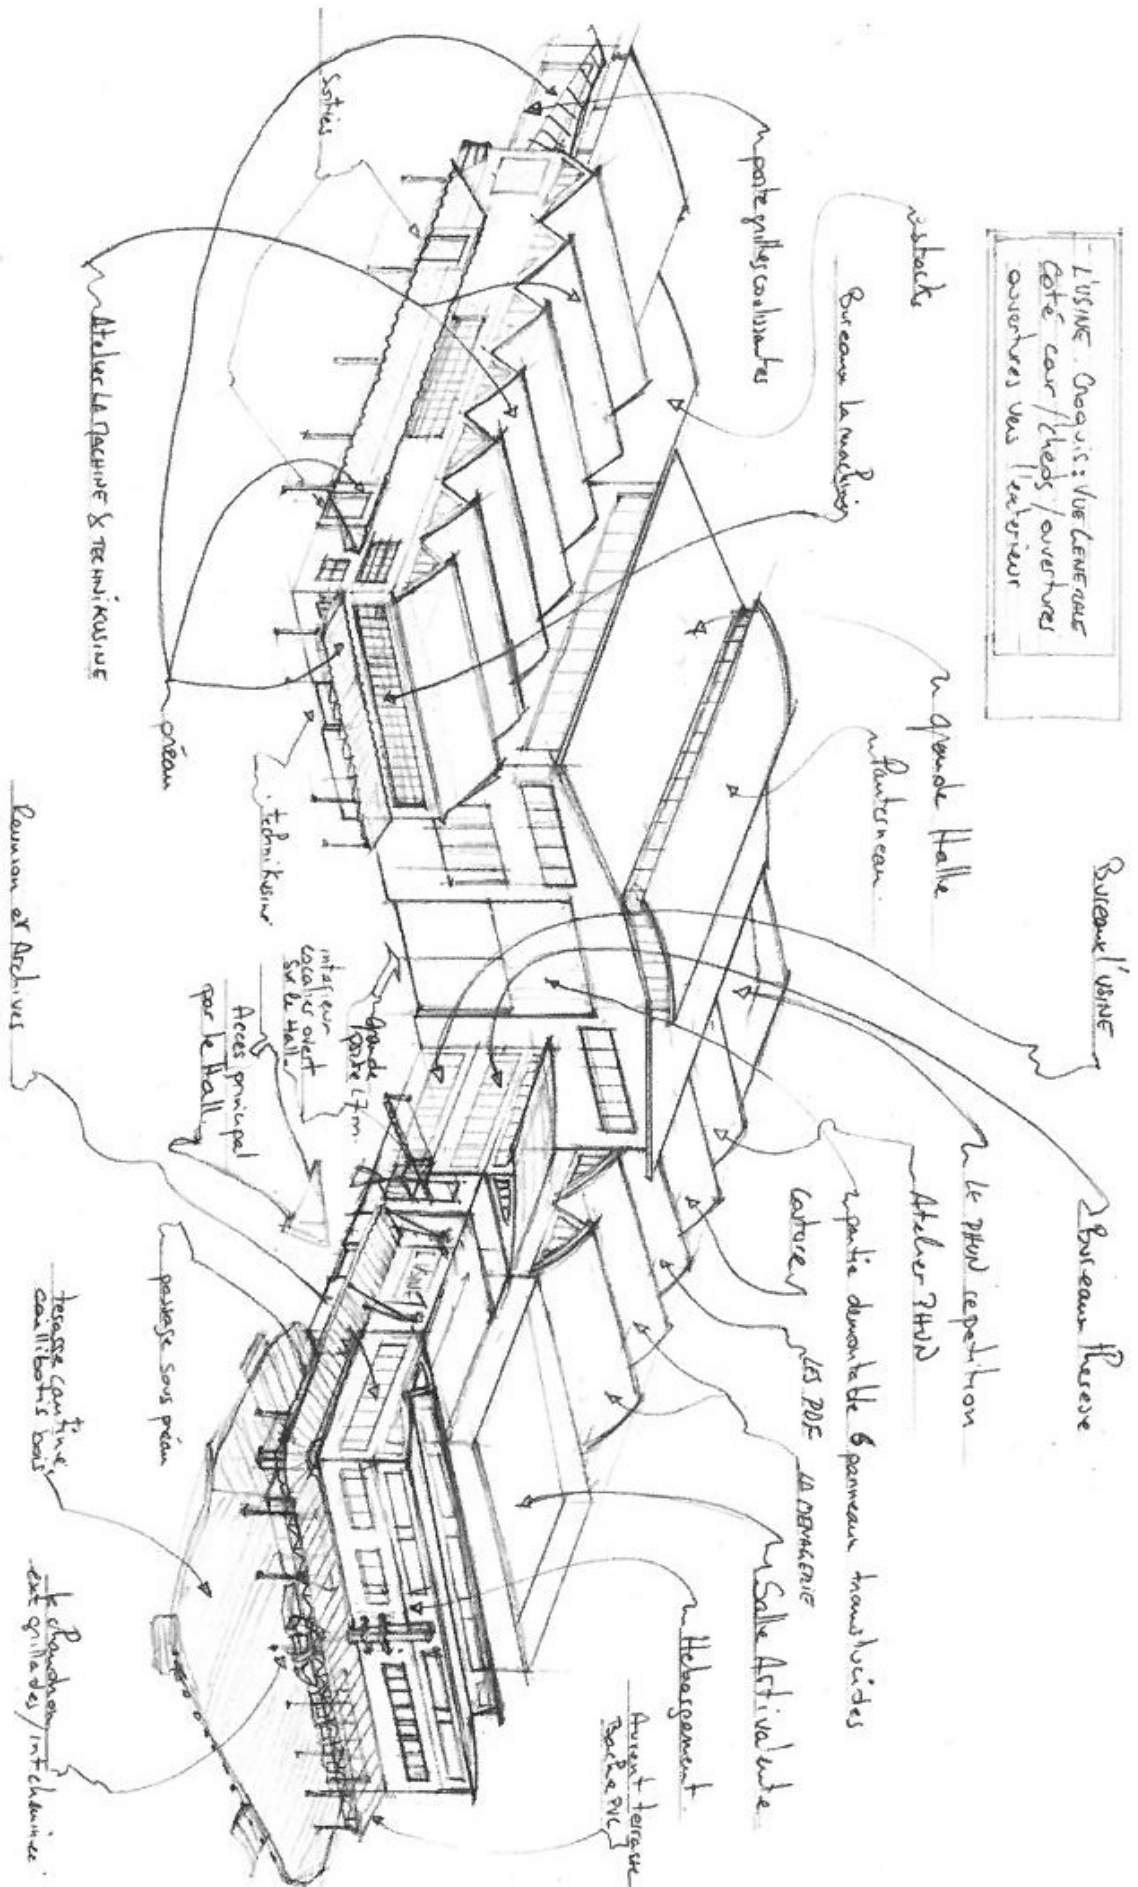 L'USINE. Croquis : VUE GENERALE
côté cour / cheds / ouvertures
ouvertures vers l'exterieur
stocks
porte grilles coulissantes
Sorties
Bureaux La machine
Atelier LA MACHINE & TECHNIKUSINE
préau
technikusine
Grande Halle
Lanterneau
Bureaux l'USINE
Bureaux Pherese
LE PHUN repetition
Atelier PHUN
partie demontable 6 panneaux translucides
LES PDF
LA MENAGERIE
Salle Artivalente
Hebergement
Auvent terrasse
Bache PVC
Grande
porte L7m.
interieur
escalier ouvert
sur le Hall
Acces principal
par le Hall
Reunion et Archives
passage sous préau
terasse cantine
caillibotis bois
le chaudron
ext grillades / int cheminee
USINE